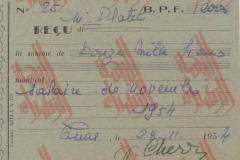 N° 25 B. P. F. 12000
REÇU de M. Platet
la somme de Douze Mille francs
montant
Salaire de Novembre
1954
le 29 11 1954
Cherry